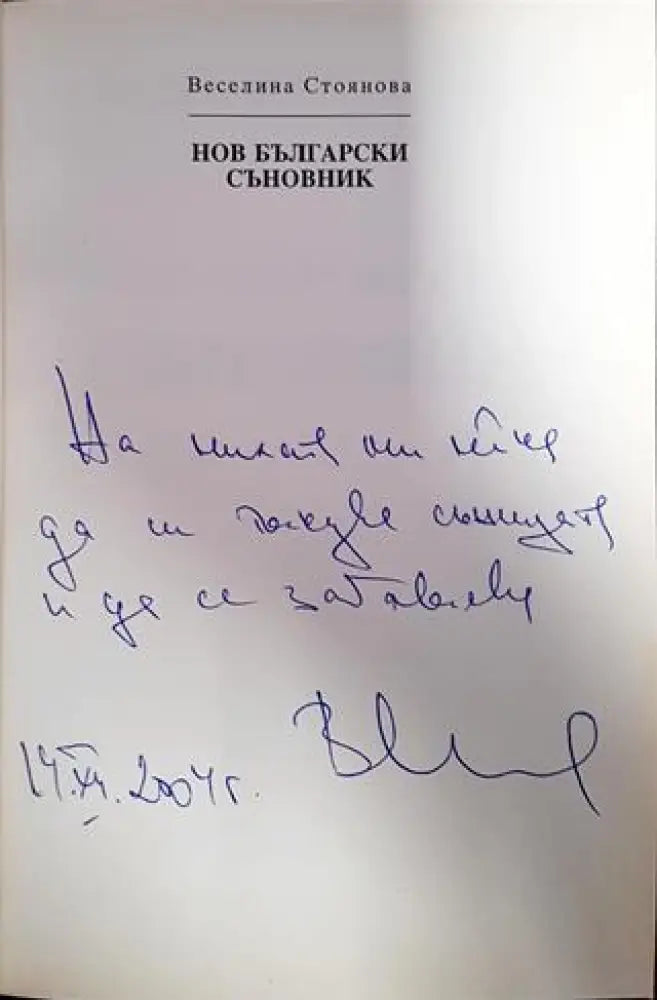 Веселина Стоянова
НОВ БЪЛГАРСКИ
СЪНОВНИК
На милата ми
да си тълкува сънищата
и да се забавлява
14.XI.2004 г.